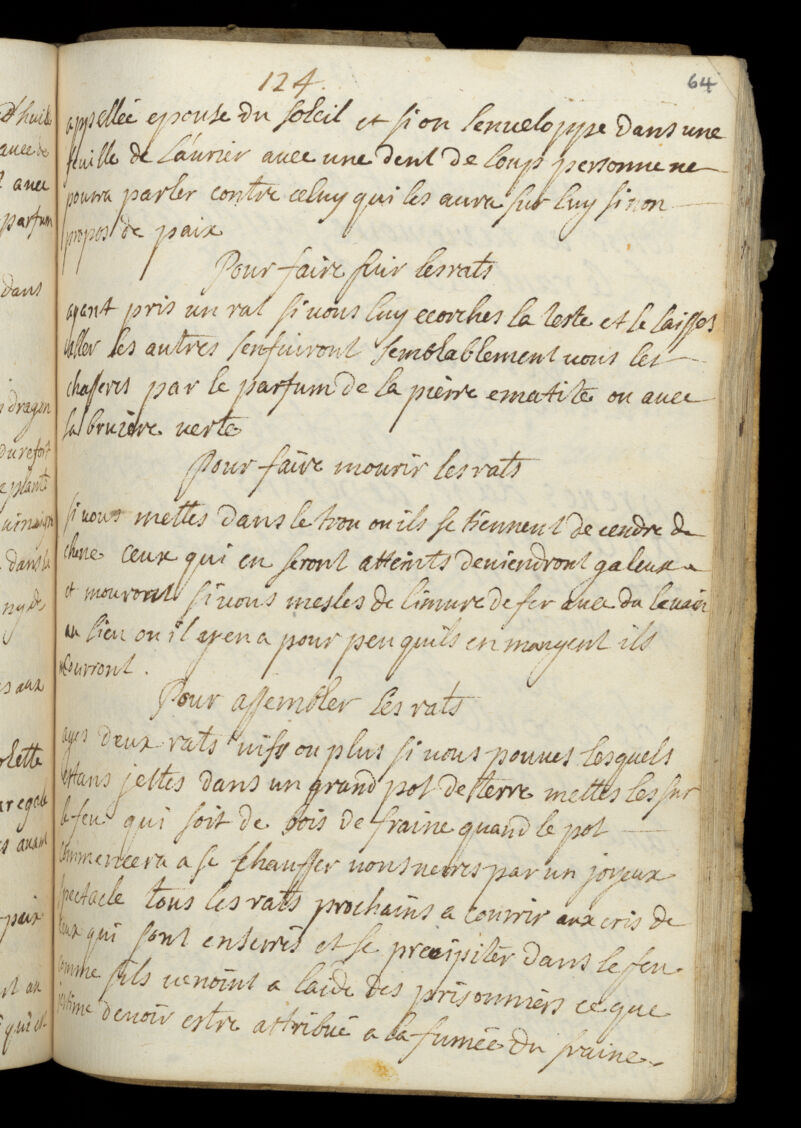 124
64
appellée epouse du soleil et si on lenveloppe dans une
feuille de Laurier avec une dent de loup personne ne
pourra parler contre celuy qui les aura sur luy sinon
propos de paix
Pour faire fuir les rats
ayant pris un rat si vous luy ecorches la teste et le laisses
aller les autres senfuiront semblablement vous les
chasseres par le parfum de la pierre ematite ou avec
la bruiere verte
Pour faire mourir les rats
si vous mettes dans le trou ou ils se tiennent de cendre de
chene ceux qui en seront atteints deviendront galeux
et mouront si vous mesles de limure de fer avec du levain
au lieu ou il y en a pour peu quils en mangent ils
mourront.
Pour assembler les rats
ayes deux rats vifs ou plus si vous pouves lesquels
estans jettes dans un grand pot de terre mettes les sur
le feu qui soit de bois de fraine quand le pot
commencera a se chauffer vous veres par un joyeux
spectacle tous les rats prochains a courrir aux cris de
ceux qui sont enserrés et se precipiter dans le feu
comme sils venoint a laide des prisonniers ce que
jestime devoir estre attribué a la fumée du fraine
dhuile
avec de
avec
parfum
dans
dragon
du refort
plante
dans la
ny de
es aux
olette
avant
paix
et au
qui est